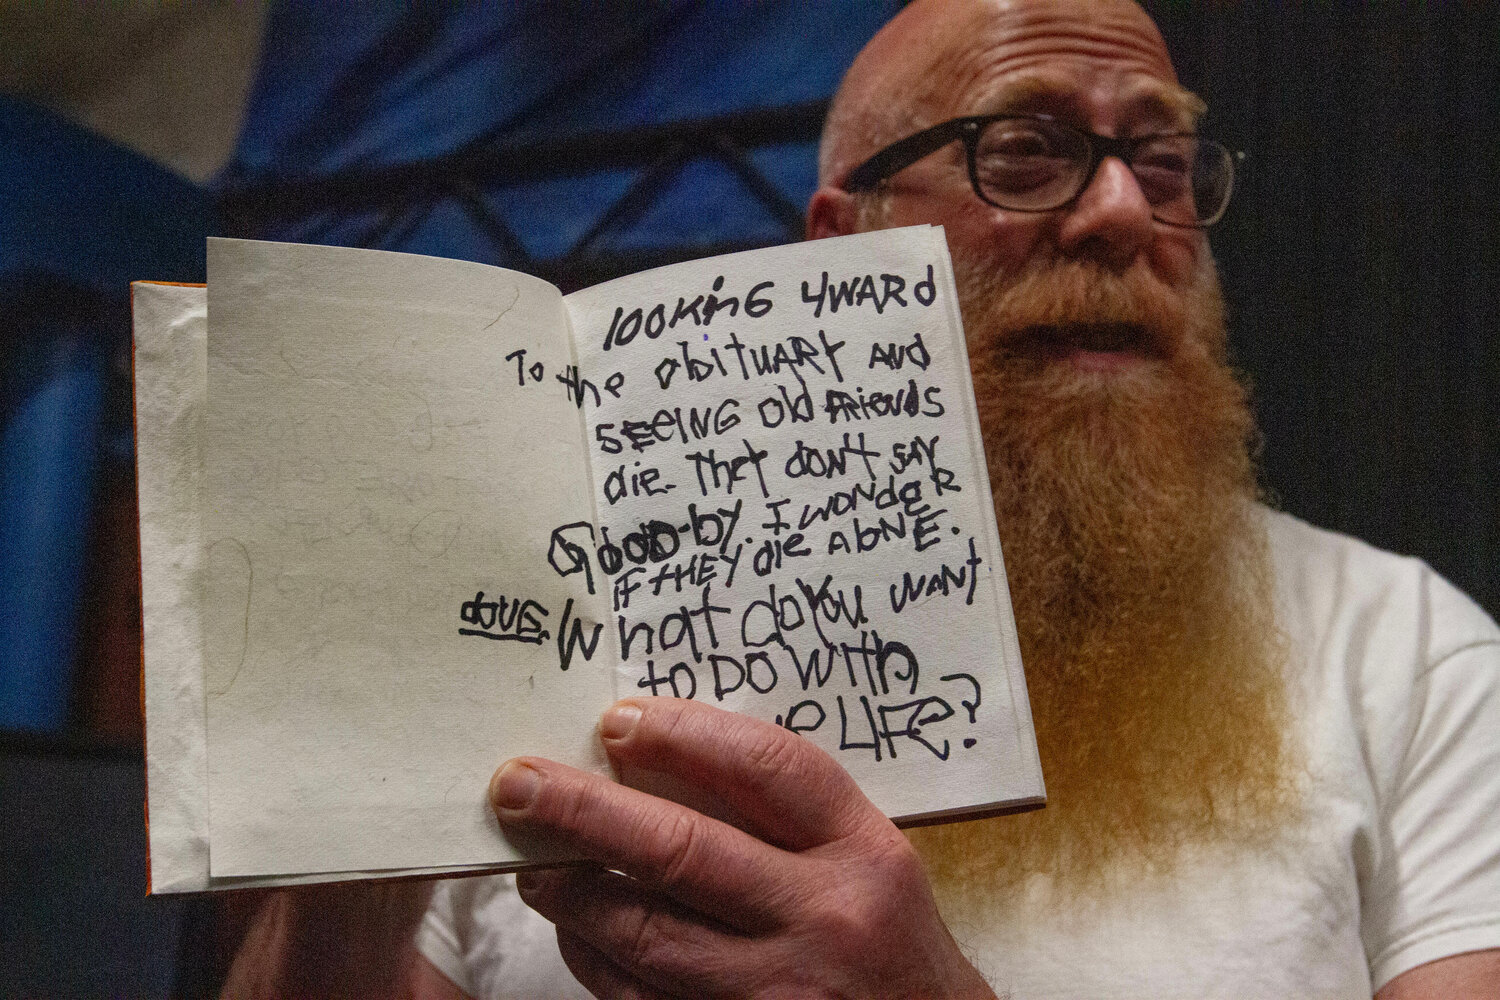 lOOKiNG 4WARd
To the obituARY AND
SEEING old FRiENdS
die. They don't SAY
GOOD-by. I WONdeR
iF tHEY die AloNE.
dOUG. What do You WANt
to DO With
LIFe?